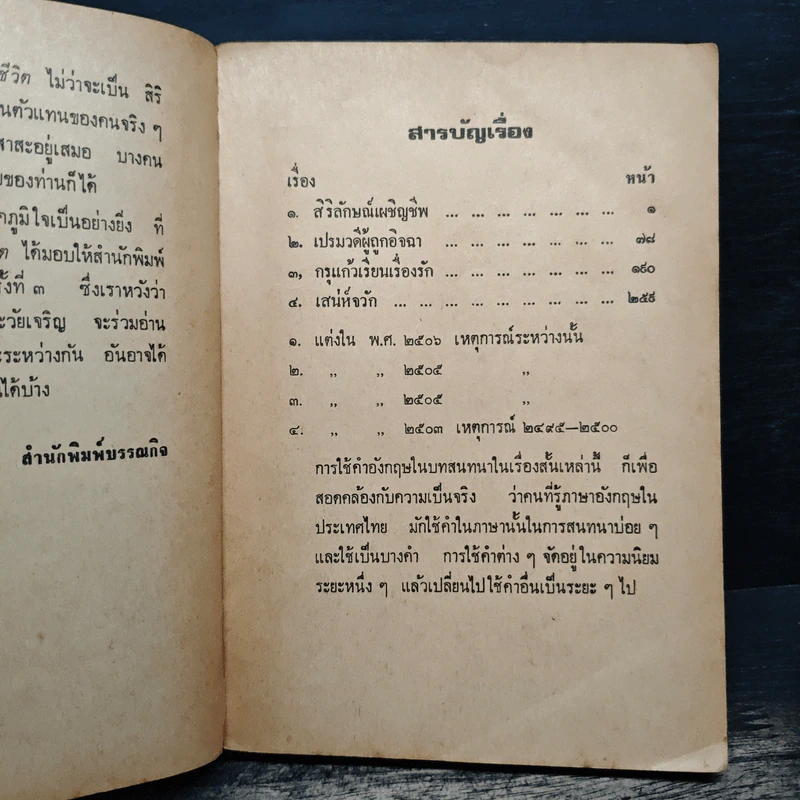 ชีวิต ไม่ว่าจะเป็น สิริ
นตัวแทนของคนจริง ๆ
าสะอยู่เสมอ บางคน
ของท่านก็ได้
กภูมิใจเป็นอย่างยิ่ง ที่
ต ได้มอบให้สำนักพิมพ์
รั้งที่ ๓ ซึ่งเราหวังว่า
ะวัยเจริญ จะร่วมอ่าน
ะระหว่างกัน อันอาจได้
นได้บ้าง
สำนักพิมพ์บรรณกิจ
สารบัญเรื่อง
เรื่อง หน้า
๑. สิริลักษณ์เผชิญชีพ ... ... ... ... ... ... ... ๑
๒. เปรมวดีผู้ถูกอิจฉา ... ... ... ... ... ... ... ๗๘
๓, กรุแก้วเรียนเรื่องรัก ... ... ... ... ... ... ... ๑๙๐
๔. เสน่ห์จวัก ... ... ... ... ... ... ... ... ... ๒๕๙
๑. แต่งใน พ.ศ. ๒๕๐๖ เหตุการณ์ระหว่างนั้น
๒. ,, ,, ๒๕๐๕ ,,
๓. ,, ,, ๒๕๐๕ ,,
๔. ,, ,, ๒๕๐๓ เหตุการณ์ ๒๔๙๕—๒๕๐๐
การใช้คำอังกฤษในบทสนทนาในเรื่องสั้นเหล่านี้ ก็เพื่อ
สอดคล้องกับความเป็นจริง ว่าคนที่รู้ภาษาอังกฤษใน
ประเทศไทย มักใช้คำในภาษานั้นในการสนทนาบ่อย ๆ
และใช้เป็นบางคำ การใช้คำต่าง ๆ จัดอยู่ในความนิยม
ระยะหนึ่ง ๆ แล้วเปลี่ยนไปใช้คำอื่นเป็นระยะ ๆ ไป